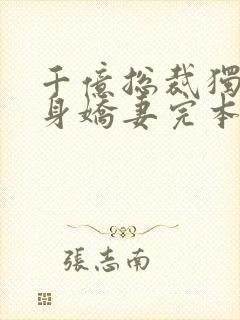 千億総裁獨
身嬌妻完本
張志南